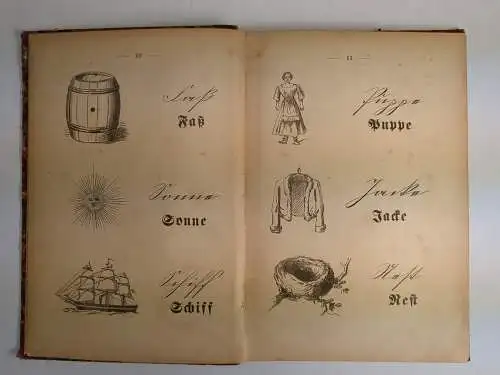 10
Faß
Faß
Sonne
Sonne
Schiff
Schiff
11
Puppe
Puppe
Jacke
Jacke
Nest
Nest